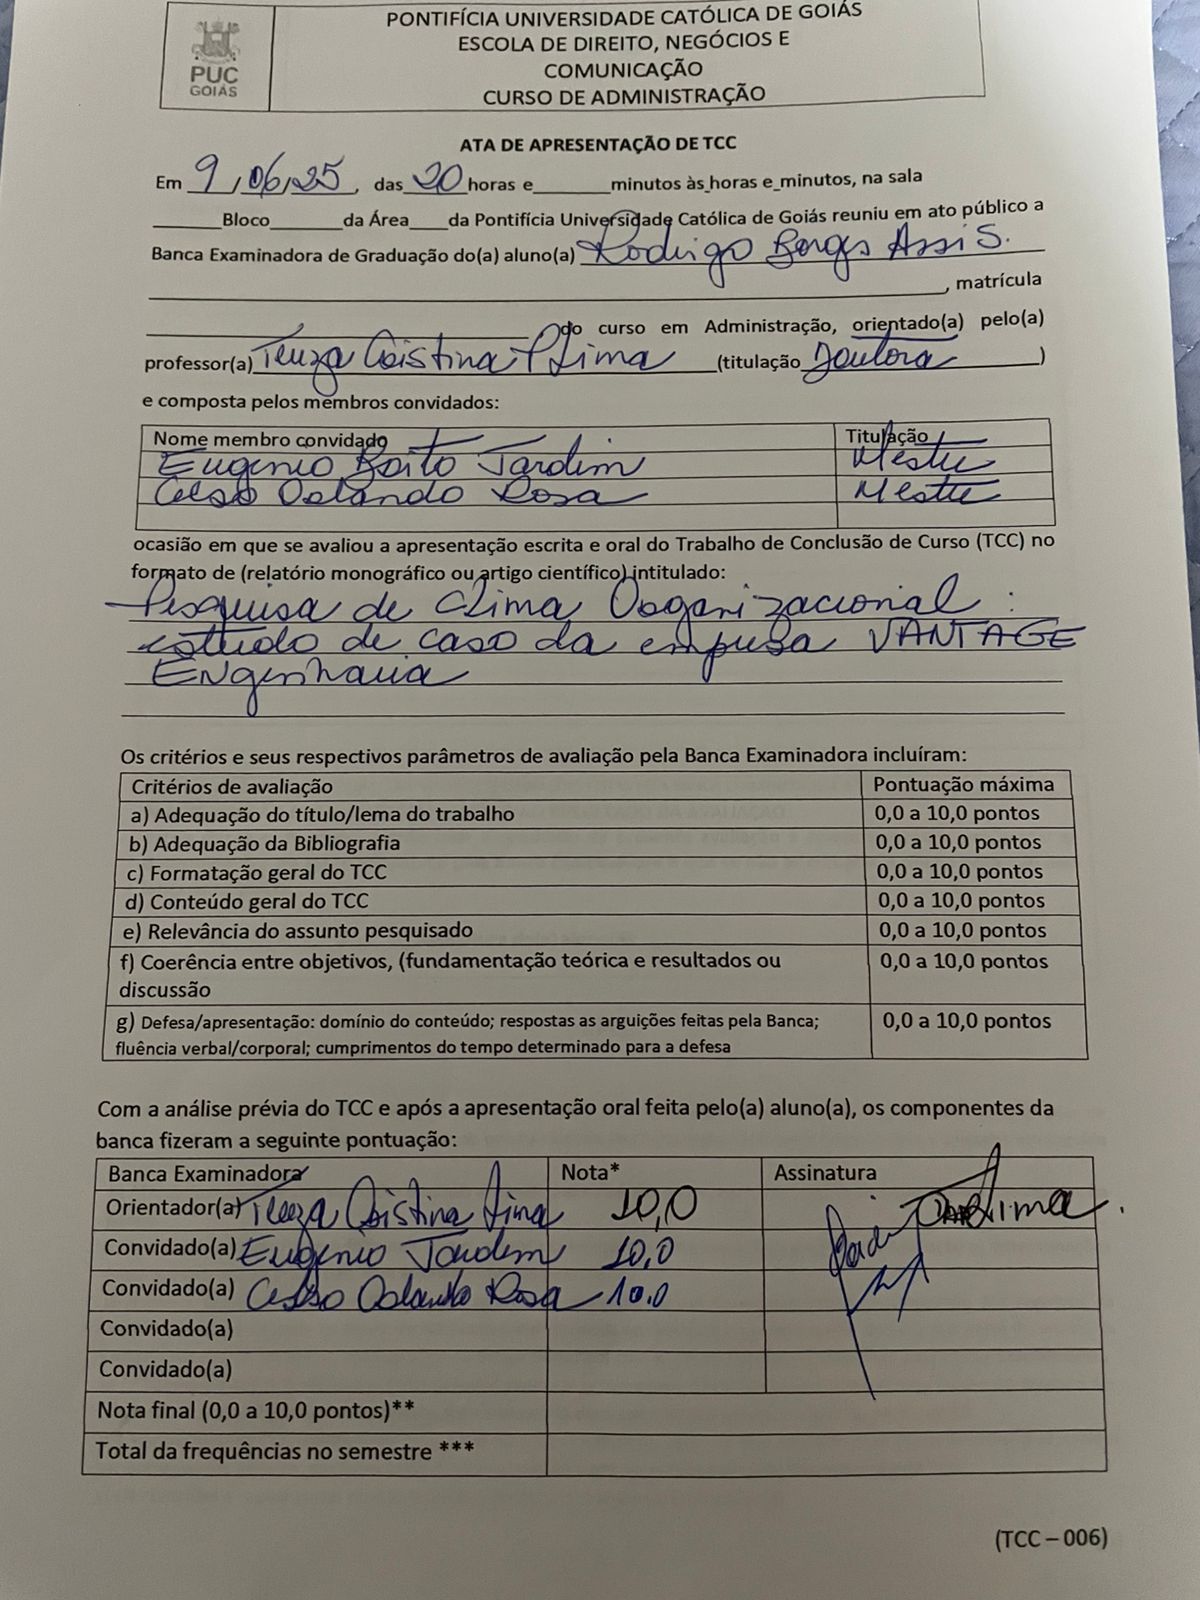 PUC
GOIÁS
PONTIFÍCIA UNIVERSIDADE CATÓLICA DE GOIÁS
ESCOLA DE DIREITO, NEGÓCIOS E
COMUNICAÇÃO
CURSO DE ADMINISTRAÇÃO
ATA DE APRESENTAÇÃO DE TCC
Em 9,06,25, das 20 horas e______minutos às_horas e_minutos, na sala
______Bloco______da Área___da Pontifícia Universidade Católica de Goiás reuniu em ato público a
Banca Examinadora de Graduação do(a) aluno(a) Rodrigo Borges Assis.
, matrícula
do curso em Administração, orientado(a) pelo(a)
professor(a) Tereza Cristina P Lima (titulação Doutora )
e composta pelos membros convidados:
Nome membro convidado Titulação
Eugenio Brito Jardim Mestre
Celso Orlando Rosa Mestre
ocasião em que se avaliou a apresentação escrita e oral do Trabalho de Conclusão de Curso (TCC) no
formato de (relatório monográfico ou artigo científico) intitulado:
Pesquisa de Clima Organizacional :
estudo de caso da empresa VANTAGE
Engenharia
Os critérios e seus respectivos parâmetros de avaliação pela Banca Examinadora incluíram:
Critérios de avaliação Pontuação máxima
a) Adequação do título/lema do trabalho 0,0 a 10,0 pontos
b) Adequação da Bibliografia 0,0 a 10,0 pontos
c) Formatação geral do TCC 0,0 a 10,0 pontos
d) Conteúdo geral do TCC 0,0 a 10,0 pontos
e) Relevância do assunto pesquisado 0,0 a 10,0 pontos
f) Coerência entre objetivos, (fundamentação teórica e resultados ou 0,0 a 10,0 pontos
discussão
g) Defesa/apresentação: domínio do conteúdo; respostas as arguições feitas pela Banca; 0,0 a 10,0 pontos
fluência verbal/corporal; cumprimentos do tempo determinado para a defesa
Com a análise prévia do TCC e após a apresentação oral feita pelo(a) aluno(a), os componentes da
banca fizeram a seguinte pontuação:
Banca Examinadora Nota* Assinatura
Orientador(a) Tereza Cristina Lima 10,0 Lima
Convidado(a) Eugenio Jardim 10,0
Convidado(a) Celso Orlando Rosa 10.0
Convidado(a)
Convidado(a)
Nota final (0,0 a 10,0 pontos)**
Total da frequências no semestre ***
(TCC – 006)